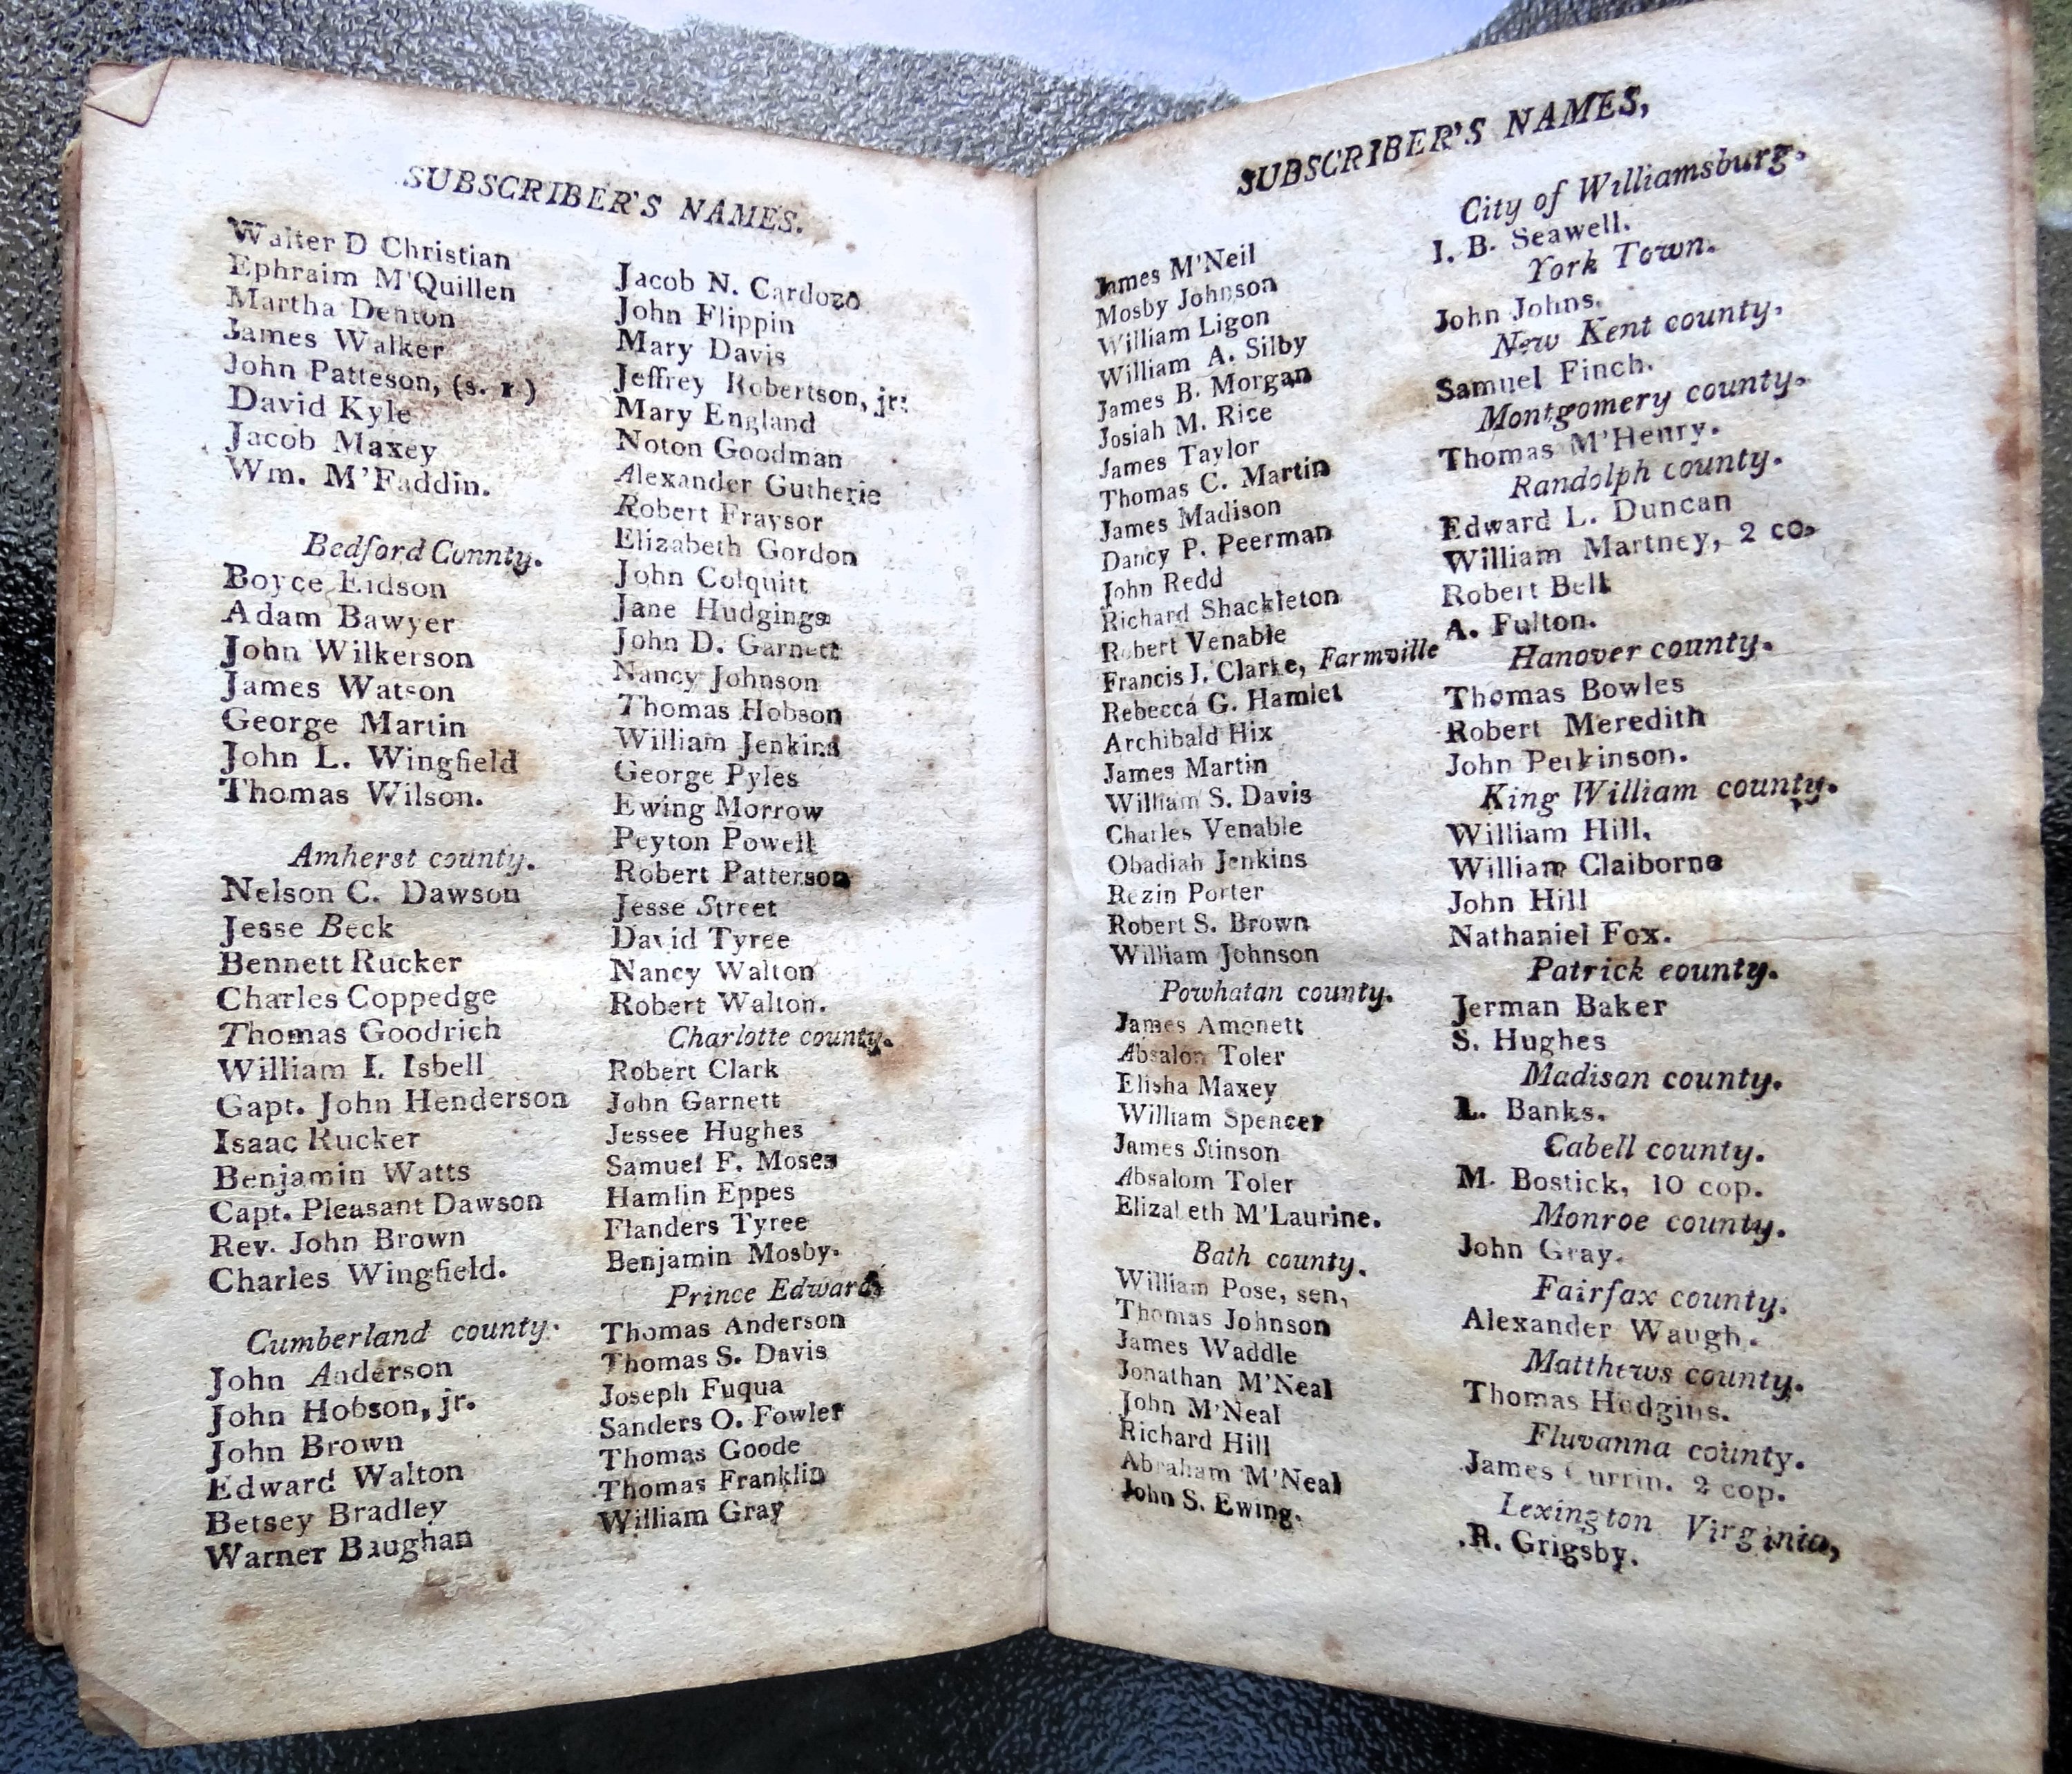 SUBSCRIBER'S NAMES.
Walter D Christian
Ephraim M'Quillen
Martha Denton
James Walker
John Patteson, (s. r.)
David Kyle
Jacob Maxey
Wm. M'Faddin.
Bedford Connty.
Boyce Eidson
Adam Bawyer
John Wilkerson
James Watson
George Martin
John L. Wingfield
Thomas Wilson.
Amherst county.
Nelson C. Dawson
Jesse Beck
Bennett Rucker
Charles Coppedge
Thomas Goodrich
William I. Isbell
Gapt. John Henderson
Isaac Rucker
Benjamin Watts
Capt. Pleasant Dawson
Rev. John Brown
Charles Wingfield.
Cumberland county.
John Anderson
John Hobson, jr.
John Brown
Edward Walton
Betsey Bradley
Warner Baughan
Jacob N. Cardozo
John Flippin
Mary Davis
Jeffrey Robertson, jr.
Mary England
Noton Goodman
Alexander Gutherie
Robert Fraysor
Elizabeth Gordon
John Colquitt
Jane Hudgings
John D. Garnett
Nancy Johnson
Thomas Hobson
William Jenkins
George Pyles
Ewing Morrow
Peyton Powell
Robert Patterson
Jesse Street
David Tyree
Nancy Walton
Robert Walton.
Charlotte county.
Robert Clark
John Garnett
Jessee Hughes
Samuel F. Moses
Hamlin Eppes
Flanders Tyree
Benjamin Mosby.
Prince Edward.
Thomas Anderson
Thomas S. Davis
Joseph Fuqua
Sanders O. Fowler
Thomas Goode
Thomas Franklin
William Gray
SUBSCRIBER'S NAMES,
James M'Neil
Mosby Johnson
William Ligon
William A. Silby
James B. Morgan
Josiah M. Rice
James Taylor
Thomas C. Martin
James Madison
Dancy P. Peerman
John Redd
Richard Shackleton
Robert Venable
Francis J. Clarke, Farmville
Rebecca G. Hamlet
Archibald Hix
James Martin
William S. Davis
Charles Venable
Obadiah Jenkins
Rezin Porter
Robert S. Brown
William Johnson
Powhatan county.
James Amonett
Absalon Toler
Elisha Maxey
William Spencer
James Stinson
Absalom Toler
Elizabeth M'Laurine.
Bath county.
William Pose, sen,
Thomas Johnson
James Waddle
Jonathan M'Neal
John M'Neal
Richard Hill
Abraham M'Neal
John S. Ewing.
City of Williamsburg.
I. B. Seawell.
York Town.
John Johns.
New Kent county.
Samuel Finch.
Montgomery county.
Thomas M'Henry.
Randolph county.
Edward L. Duncan
William Martney, 2 co.
Robert Bell
A. Fulton.
Hanover county.
Thomas Bowles
Robert Meredith
John Perkinson.
King William county.
William Hill.
William Claiborne
John Hill
Nathaniel Fox.
Patrick eounty.
Jerman Baker
S. Hughes
Madison county.
L. Banks.
Cabell county.
M. Bostick, 10 cop.
Monroe county.
John Gray.
Fairfax county.
Alexander Waugh.
Matthews county.
Thomas Hudgins.
Fluvanna county.
James Currin. 2 cop.
Lexington Virginia,
R. Grigsby.